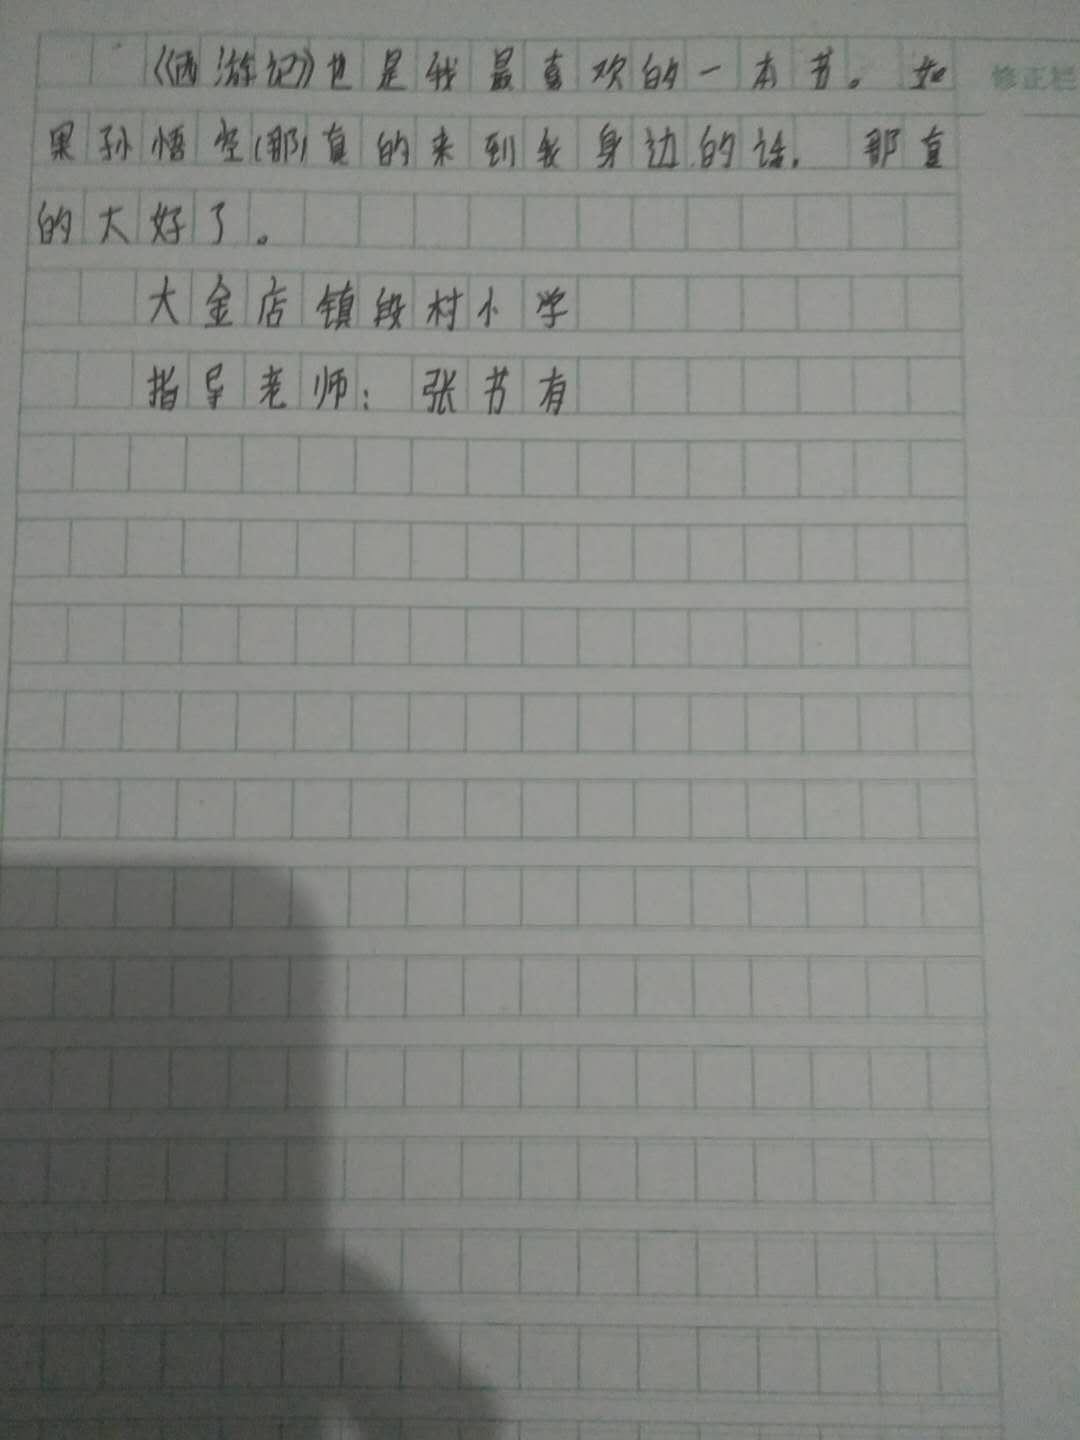 《西游记》也是我最喜欢的一本书。如
果孙悟空(那)真的来到我身边的话,那真
的太好了。
大金店镇段村小学
指导老师：张书有
修正栏